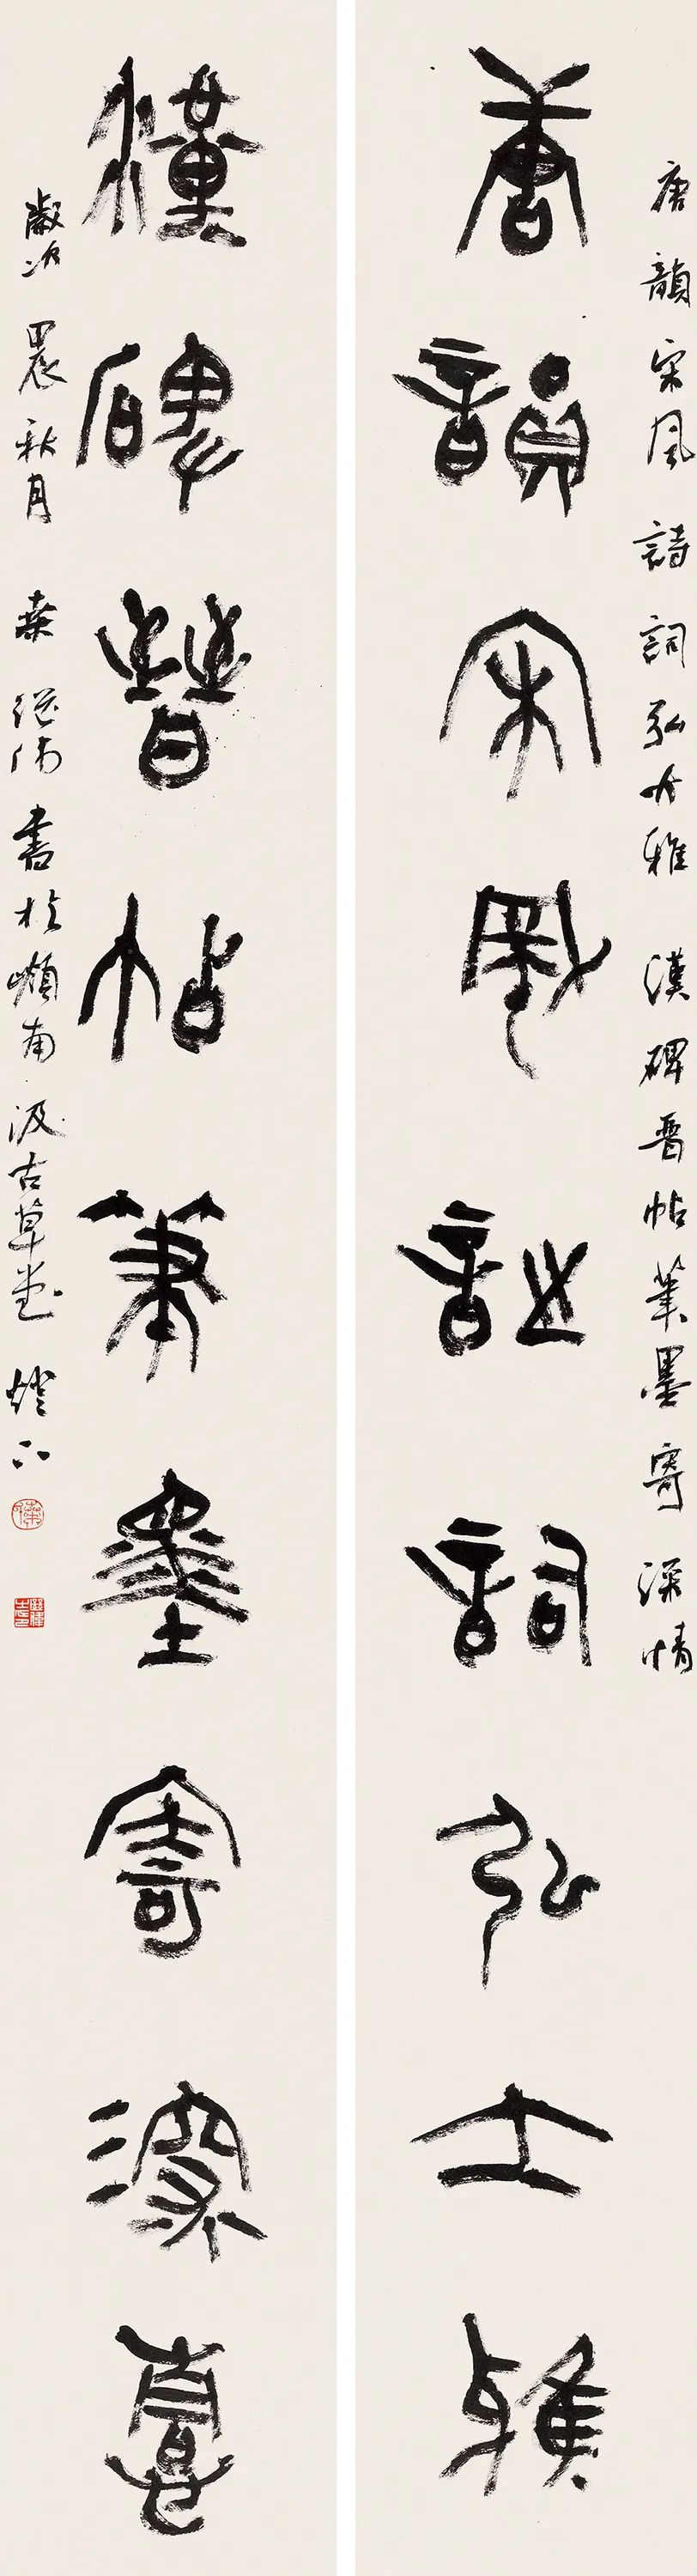 唐韻宋風詩詞弘大雅漢碑晋帖筆墨寄深情
唐韻宋風詩詞弘大雅
漢碑晉帖筆墨寄深情
歲次甲辰秋月書於嶺南汲古草堂燈下